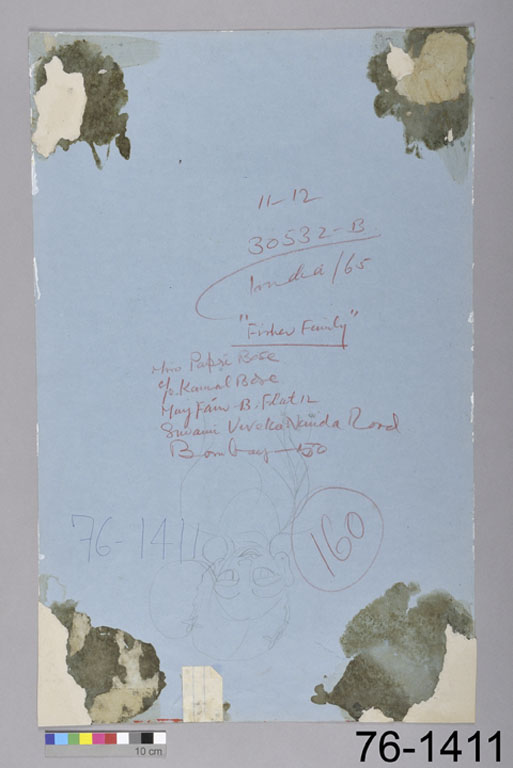 11-12
30532-B
India/65
"Fisher Family"
Miss Papsi Bose
c/o. Kamal Bose
May Fair-B. Flat 12
Swami Viveka Nanda Road
Bombay-50
76-1411
160
10 cm
76-1411